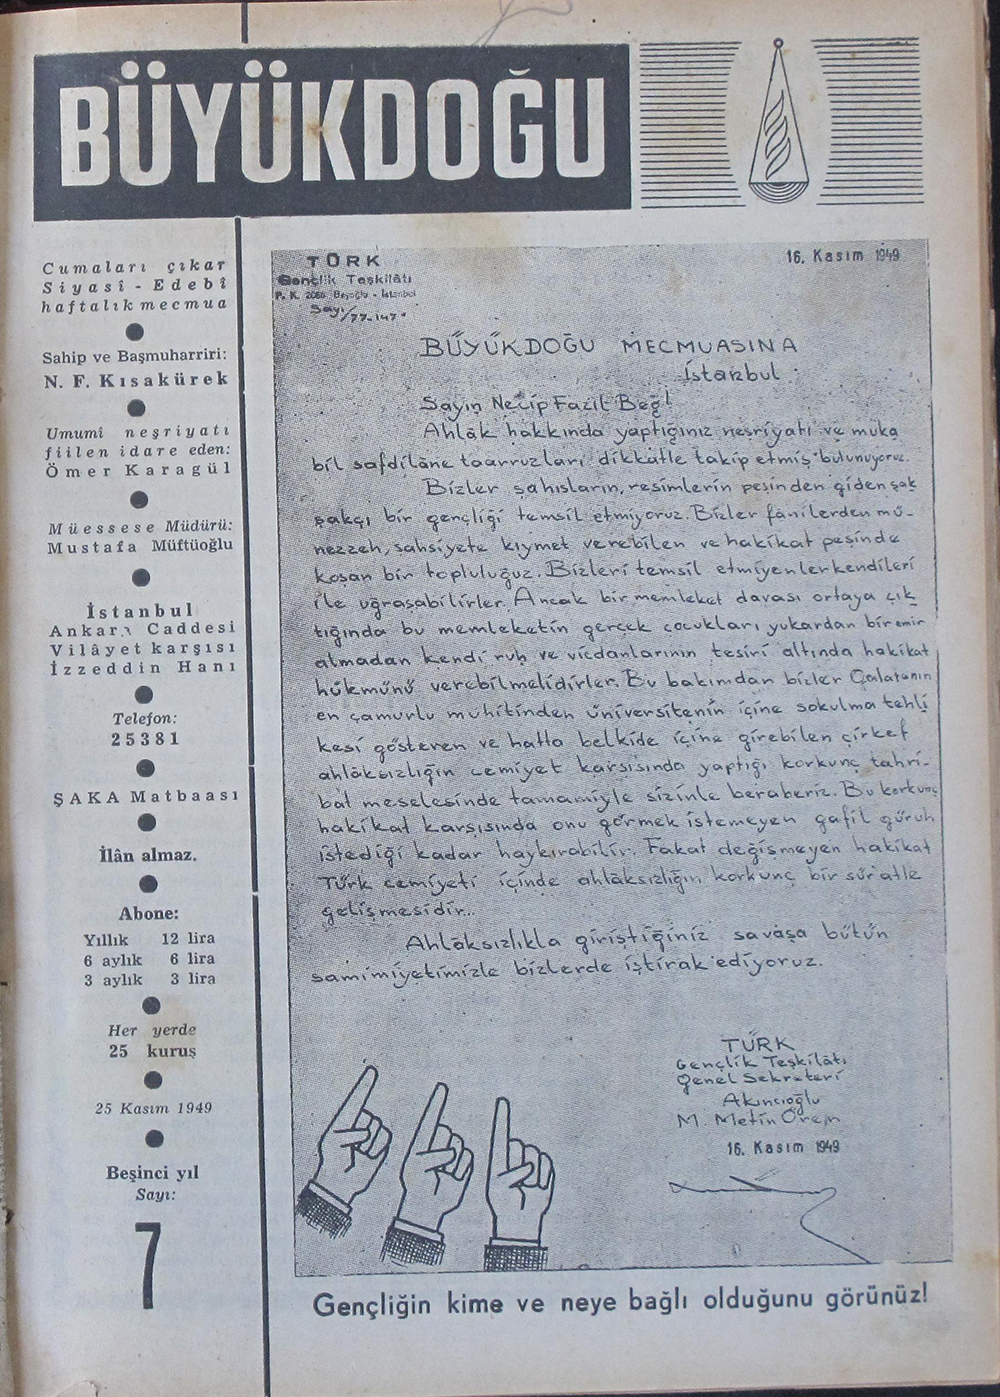 BÜYÜKDOĞU
Cumaları çıkar
Siyasî - Edebî
haftalık mecmua
Sahip ve Başmuharriri:
N. F. Kısakürek
Umumî neşriyatı
fiilen idare eden:
Ömer Karagül
Müessese Müdürü:
Mustafa Müftüoğlu
İstanbul
Ankara Caddesi
Vilâyet karşısı
İzzeddin Hanı
Telefon:
25381
ŞAKA Matbaası
İlân almaz.
Abone:
Yıllık 12 lira
6 aylık 6 lira
3 aylık 3 lira
Her yerde
25 kuruş
25 Kasım 1949
Beşinci yıl
Sayı:
7
TÜRK
Gençlik Teşkilâtı
P. K. 2086 Beyoğlu - İstanbul
Sayı/77-147.
16. Kasım 1949
BÜYÜKDOĞU MECMUASINA
İstanbul
Sayın Necip Fazıl Beğ!
Ahlâk hakkında yaptığınız neşriyatı ve muka
bil safdilâne taarruzları dikkatle takip etmiş bulunuyoruz.
Bizler şahısların, resimlerin peşinden giden şak
şakçı bir gençliği temsil etmiyoruz. Bizler fânilerden mü-
nezzeh, şahsiyete kıymet verebilen ve hakikat peşinde
koşan bir topluluğuz. Bizleri temsil etmiyenler kendileri
ile uğraşabilirler. Ancak bir memleket davası ortaya çık
tığında bu memleketin gerçek çocukları yukardan bir emir
almadan kendi ruh ve vicdanlarının tesiri altında hakikat
hükmünü verebilmelidirler. Bu bakımdan bizler Galatanın
en çamurlu muhitinden üniversitenin içine sokulma tehli
kesi gösteren ve hatta belkide içine girebilen çirkef
ahlâksızlığın cemiyet karşısında yaptığı korkunç tahri-
bat meselesinde tamamiyle sizinle beraberiz. Bu korkunç
hakikat karşısında onu görmek istemeyen gafil güruh
istediği kadar haykırabilir. Fakat değişmeyen hakikat
Türk cemiyeti içinde ahlâksızlığın korkunç bir sür'atle
gelişmesidir...
Ahlâksızlıkla giriştiğiniz savaşa bütün
samimiyetimizle bizlerde iştirak ediyoruz.
TÜRK
Gençlik Teşkilâtı
Genel Sekreteri
Akıncıoğlu
M. Metin Ören
16. Kasım 1949
Gençliğin kime ve neye bağlı olduğunu görünüz!